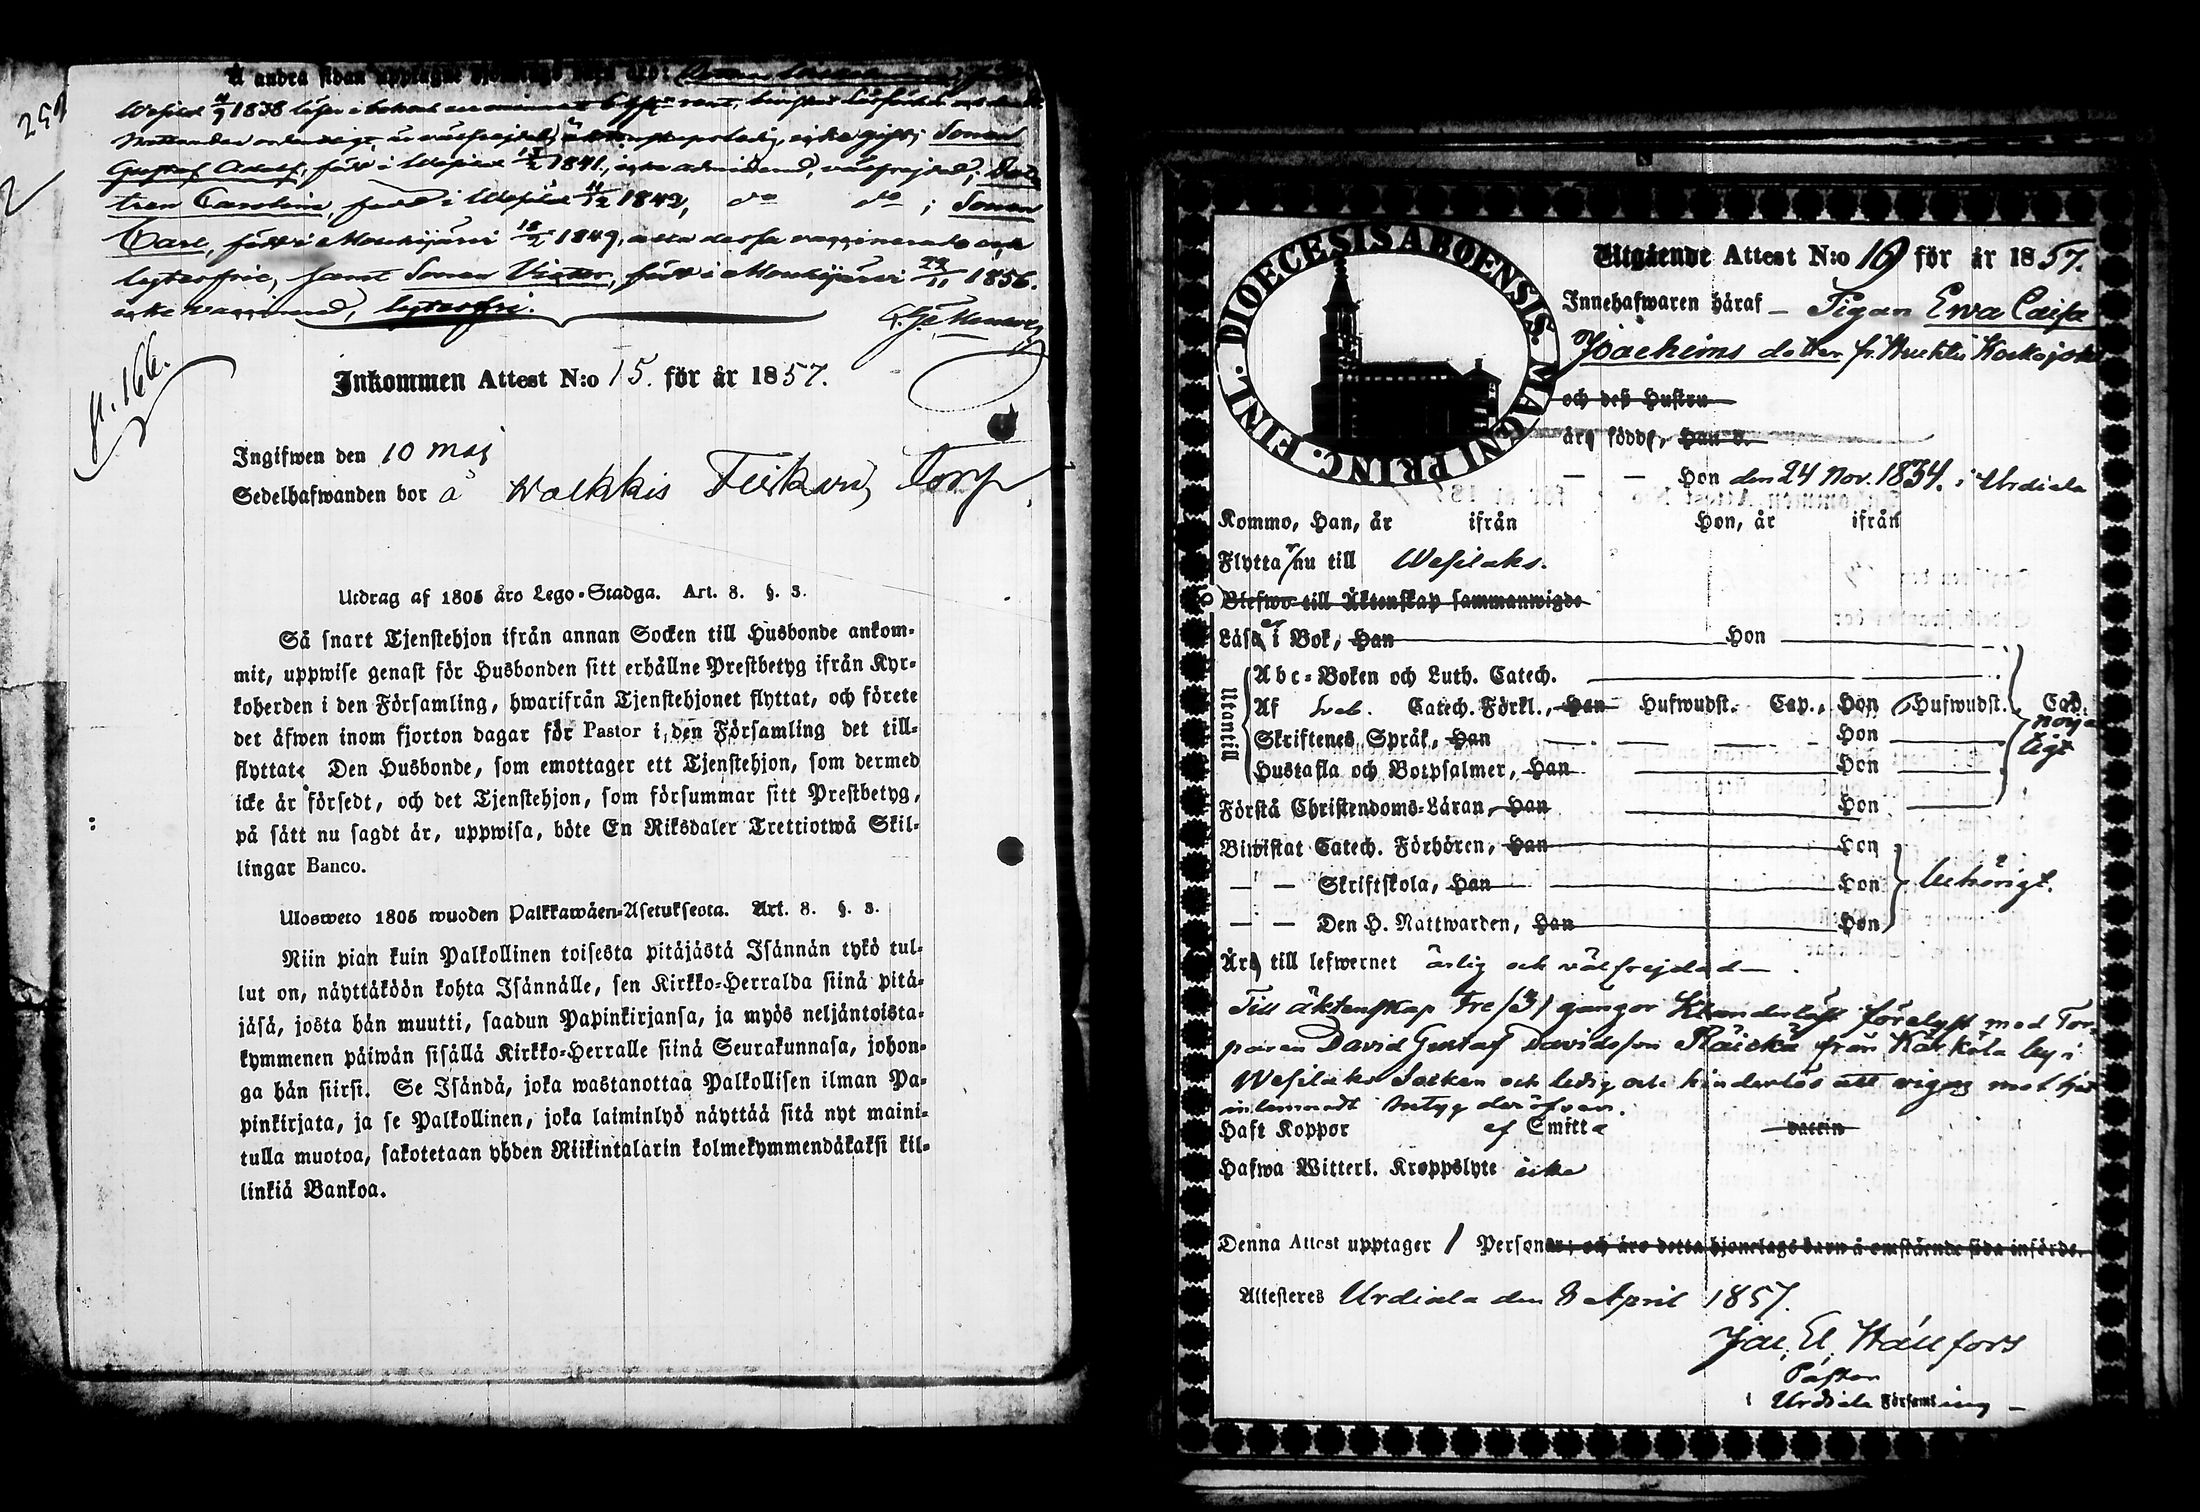 Å andra sidan upptagne
Wesilax 1838 läser i bokoch
Nattvarden ordentligt, är välfrejdad, Sonen
Gustaf Adolf, född i Wesilax 1841, icke admitterad, välfrejdad; Dot-
tren Carolina, född i Wesilax 11/12 1842, do do ; Sonen
Carl, född i Mouhijärvi 18/2 1849, alla dessa vaccinerade och
lytesfrie, samt Sonen Victor, född i Mouhijärvi 1856.
icke vaccinerad, lytesfri.
p. 166.
Inkommen Attest N:o 15. för år 1857.
Ingifwen den 10 maj
Sedelhafwanden bor å Torp
Utdrag af 1805 års Lego-Stadga. Art. 8. §. 3.
Så snart Tjenstehjon ifrån annan Socken till Husbonde ankom-
mit, uppwise genast för Husbonden sitt erhållne Prestbetyg ifrån Kyr-
koherden i den Församling, hwarifrån Tjenstehjonet flyttat, och förete
det äfwen inom fjorton dagar för Pastor i den Församling det till-
flyttat. Den Husbonde, som emottager ett Tjenstehjon, som dermed
icke är försedt, och det Tjenstehjon, som försummar sitt Prestbetyg,
på sätt nu sagdt är, uppwisa, böte En Riksdaler Trettiotwå Skil-
lingar Banco.
Ulosweto 1805 wuoden Palkkawäen-Asetuksesta. Art. 8. §. 3.
Niin pian kuin Palkollinen toisesta pitäjästä Isännän tykö tul-
lut on, näyttäköön kohta Isännälle, sen Kirkko-Herralda siinä pitä-
jäsä, josta hän muutti, saadun Papinkirjansa, ja myös neljäntoista-
kymmenen päiwän sisällä Kirkko-Herralle siinä Seurakunnasa, johon-
ga hän siirsi. Se Isändä, joka wastanottaa Palkollisen ilman Pa-
pinkirjata, ja se Palkollinen, joka laiminlyö näyttää sitä nyt maini-
tulla muotoa, sakotetaan yhden Riikintalarin kolmekymmendäkaksi kil-
linkiä Bankoa.
DIOECESIS ABOENSIS. MAGNI PRINC. FINL.
Utgående Attest N:o 19 för år 1857.
Innehafwaren häraf Pigan Ewa Caisa
Joachims dotter fr.
och dess Hustru
äro födde, Han d.
— — Hon den 24 Nov. 1834. i Urdiala
Kommo, Han, år ifrån Hon, år ifrån
Flytta r nu till Wesilaks.
Blefwo till Äktenskap sammanwigde
Läsa er i Bok, Han Hon
Utantill
Abc-Boken och Luth. Catech.
Af Sveb. Catech. Förkl., Han Hufwudst. Cap., Hon 6 Hufwudst. Cap.
Skriftenes Språk, Han Hon
Hustafla och Botpsalmer, Han Hon
Förstå Christendoms-Läran, Han Hon
nöja-
ligt
Biwistat Catech. Förhören, Han Hon
— — Skriftskola, Han Hon
— — Den H. Nattwarden, Han Hon
behörigt.
Äro till lefwernet ärlig och välfrejdad
Till äktenskap Tre /3/ gångor förelyst med Tor-
paren David Gustaf Davidsson från Kärkölä by i
Wesilaks Socken och ledig och hinderlös att vigas mot hit
inlemnadt betyg deröfver.
Haft Koppor af Smitta vaccin
Hafwa Witterl. Kroppslyte icke
Denna Attest upptager 1 Personer; och äro detta hjonelags barn å omstående sida införde.
Attesteres Urdiala den 8 April 1857.
Pastor
i Urdiala Församling